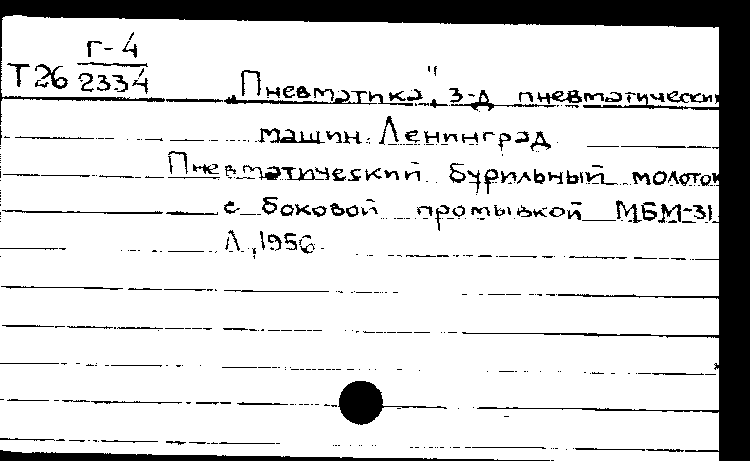 Г-4
Т26 2334
„Пневматика", з-д пневматически
машин. Ленинград
Пневматический бурильный молоток
с боковой промывкой МБМ-31
Л., 1956